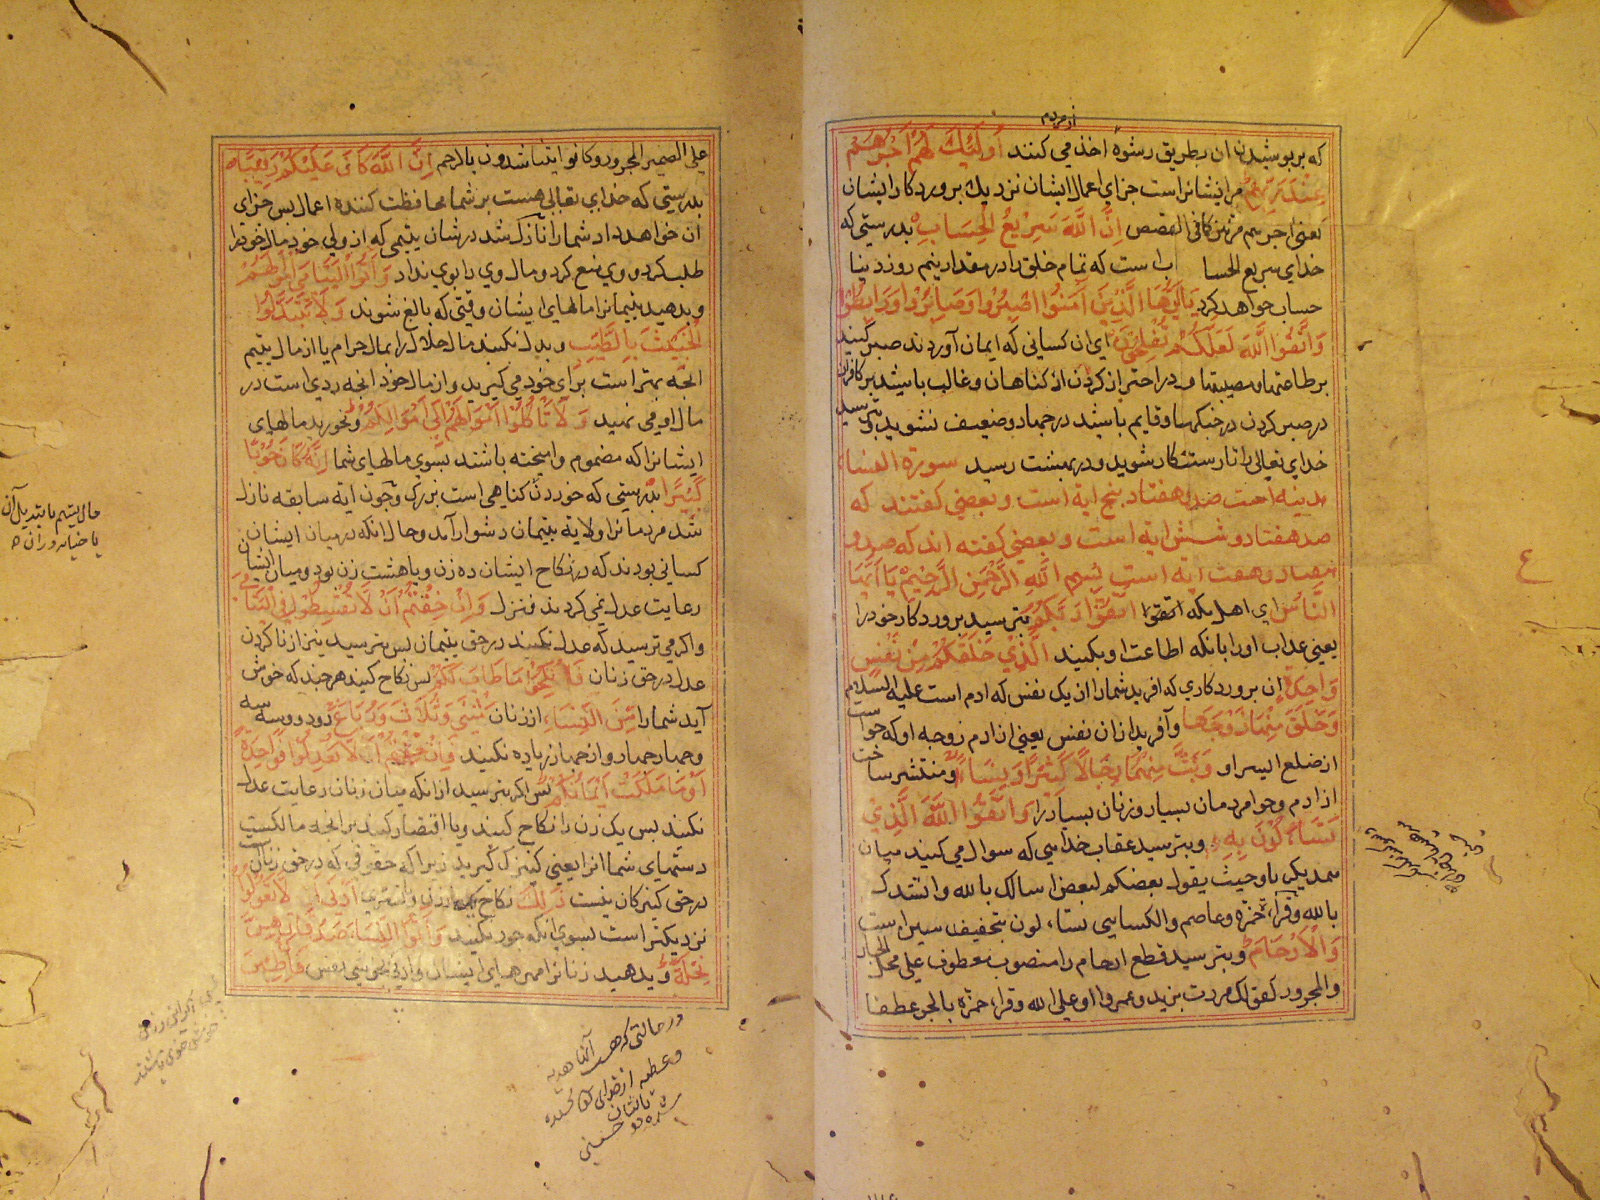 از مردم
که بر پوشیدن ان بطریق رشوة اخذ می کنند أُولَٰئِكَ لَهُمْ أَجْرُهُمْ
عِنْدَ رَبِّهِمْ مرایشانراست جزای اعمال ایشان نزدیك پروردکار ایشان
یعنی اجرهم مرتین کافی القصص إِنَّ اللَّهَ سَرِيعُ الْحِسَابِ بدرستی که
خدای سریع الحسا اب است که تمام خلق را در مقدار نیم روز دنیا
حساب خواهد کرد يَا أَيُّهَا الَّذِينَ آمَنُوا اصْبِرُوا وَصَابِرُوا وَرَابِطُوا
وَاتَّقُوا اللَّهَ لَعَلَّكُمْ تُفْلِحُونَ ای ان کسانی که ایمان آوردند صبر کنید
بر طاعتها و مصیبتها و در احتراز کردن از کناهان و غالب باشید بر کافران
در صبر کردن در جنکها و قایم باشید در جهاد و ضعیف نشوید و بترسید
خدای تعالی را تا رستکار شوید و در بهشت رسید سورة النساء
مدینه است صد و هفتاد پنج ایة است و بعضی کفتند که
صد هفتاد و شش ایة است و بعضی کفته اند که صد و
هفتاد و هفت ایة است بِسْمِ اللَّهِ الرَّحْمَنِ الرَّحِيمِ يَا أَيُّهَا
النَّاسُ ای اهل مکه اتَّقُوا اتَّقُوا رَبَّكُمُ بترسید پروردکار خود را
یعنی عذاب او را بانکه اطاعت او بکنید الَّذِي خَلَقَكُمْ مِنْ نَفْسٍ
وَاحِدَةٍ ان پروردکاری که افرید شما را از یک نفس که ادم است علیه السلام
وَخَلَقَ مِنْهَا زَوْجَهَا و آفرید از ان نفس یعنی از ادم زوجه او که حوا ست
از ضلع الیسر او وَبَثَّ مِنْهُمَا رِجَالًا كَثِيرًا وَنِسَاءً و منتشر ساخت
از ادم و حوا مردمان بسیار و زنان بسیار را وَاتَّقُوا اللَّهَ الَّذِي
تَسَاءَلُونَ بِهِ و بترسید عقاب خدایی که سوال می کنید میان
همدیکر باو حیث یقول بعضکم لبعض اسالك بالله و انشدك
بالله و قراء حمزه و عاصم و الکسایی تساءلون بتخفیف سین است
وَالْأَرْحَامَ و بترسید قطع ارحام را منصوب معطوف علی محل الجار
و المجرور کقولک مررت بزید و عمروا او علی الله و قراء حمزة بالجر عطفا
علی الضمیر المجرور و کانوا یتناشدون بالرحم إِنَّ اللَّهَ كَانَ عَلَيْكُمْ رَقِيبًا
بدرستی که خدای تعالی هست بر شما محافظت کننده اعمال پس جزای
ان خواهد داد شما را نازل شد در شان یتیمی که از ولی خود مال خود را
طلب کرد و وی منع کرد و مال وی را بوی نداد وَآتُوا الْيَتَامَىٰ أَمْوَالَهُمْ
و بدهید یتیمانرا مالهای ایشان وقتی که بالغ شوند وَلَا تَتَبَدَّلُوا
الْخَبِيثَ بِالطَّيِّبِ و بدل نکنید مال حلال را بمال حرام یا از مال یتیم
انچه بهتر است برای خود می کیرید و از مال خود انچه ردی است در
مال او می نهید وَلَا تَأْكُلُوا أَمْوَالَهُمْ إِلَىٰ أَمْوَالِكُمْ و نخورید مالهای
ایشانرا که مضموم و امیخته باشند بسوی مالهای شما إِنَّهُ كَانَ حُوبًا
كَبِيرًا بدرستی که خوردن کناهی است بزرک و چون ایة سابقه نازل
شد مردمانرا ولایة یتیمان دشوار آمد و حال انکه در میان ایشان
کسانی بودند که در نکاح ایشان ده زن و یا هشت زن بود و میان ایشان
رعایت عدل نمی کردند فنزل وَإِنْ خِفْتُمْ أَنْ لَا تُقْسِطُوا فِي الْيَتَامَىٰ
و اکر می ترسید که عدل نکنید در حق یتیمان پس بترسید نیز از نا کردن
عدل در حق زنان فَانْكِحُوا مَا طَابَ لَكُمْ پس نکاح کنید هر چند که خوش
آید شما را مِنَ النِّسَاءِ از زنان مَثْنَىٰ وَثُلَاثَ وَرُبَاعَ دو دو و سه سه
و چهار چهار و از چهار زیاده نکنید فَإِنْ خِفْتُمْ أَلَّا تَعْدِلُوا فَوَاحِدَةً
أَوْ مَا مَلَكَتْ أَيْمَانُكُمْ پس اکر بترسید از انکه میان زنان رعایت عدل
نکنید پس یک زن را نکاح کنید و یا اقتصار کنید بر انچه مالکست
دستهای شما انرا یعنی کنیزک کیرید زیرا که حقوقی که در حق زنان است
در حق کنیزکان نیست ذَٰلِكَ نکاح یک زن و تسری أَدْنَىٰ أَلَّا تَعُولُوا
نزدیکتر است بسوی انکه جور نکنید وَآتُوا النِّسَاءَ صَدُقَاتِهِنَّ
نِحْلَةً و بدهید زنانرا مهرهای ایشان فَإِنْ طِبْنَ
مال یتیم یا تبدیل آن
در حالتی که هست آنها هدیه
و عطیه از خدای
حسینی
٤